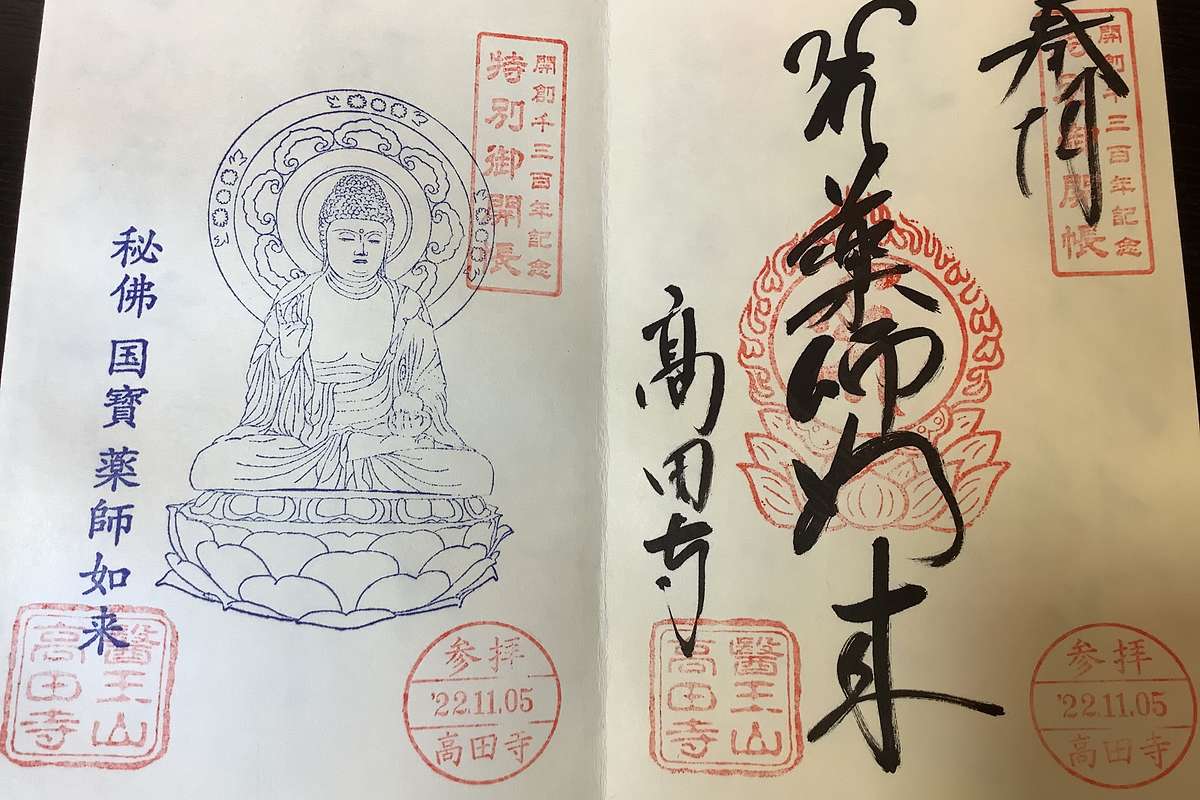 開創千三百年記念
特別御開帳
奉拝
薬師如来
髙田寺
醫王山
高田寺
参拝
'22.11.05
高田寺
開創千三百年記念
特別御開帳
秘佛 国寶 薬師如来
醫王山
高田寺
参拝
'22.11.05
高田寺